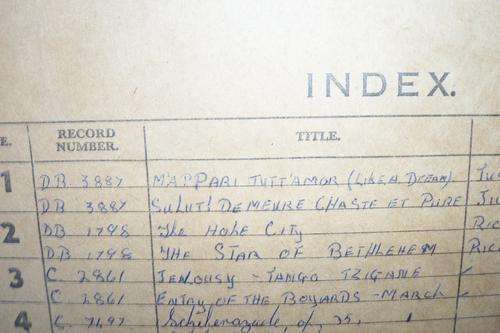 INDEX.
E. RECORD NUMBER. TITLE.
1 DB 3887 M'APPARI TUTT'AMOR (LIKE A DREAM) JU
DB 3887 SALUT! DEMEURE CHASTE ET PURE JU
2 DB 1798 The HOLE CITY RIC
DB 1798 THE STAR OF BETHLEHEM RIC
3 C. 2861 JENOUSY - TANGO TZIGANE
C. 2861 ENTRY OF THE BOYARDS - MARCH
4 C. 7497 Scheherazade, op 35,